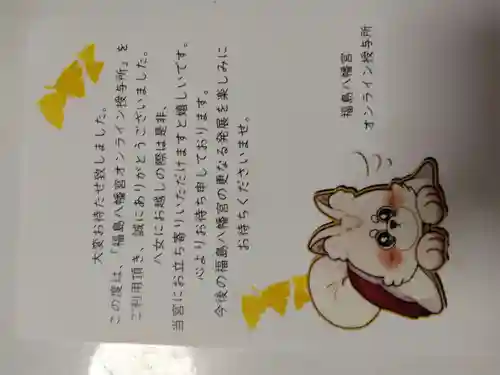 大変お待たせ致しました。
この度は、「福島八幡宮オンライン授与所」を
ご利用頂き、誠にありがとうございました。
八女にお越しの際は是非、
当宮にお立ち寄りいただけますと嬉しいです。
心よりお待ち申しております。
今後の福島八幡宮の更なる発展を楽しみに
お待ちくださいませ。
福島八幡宮
オンライン授与所